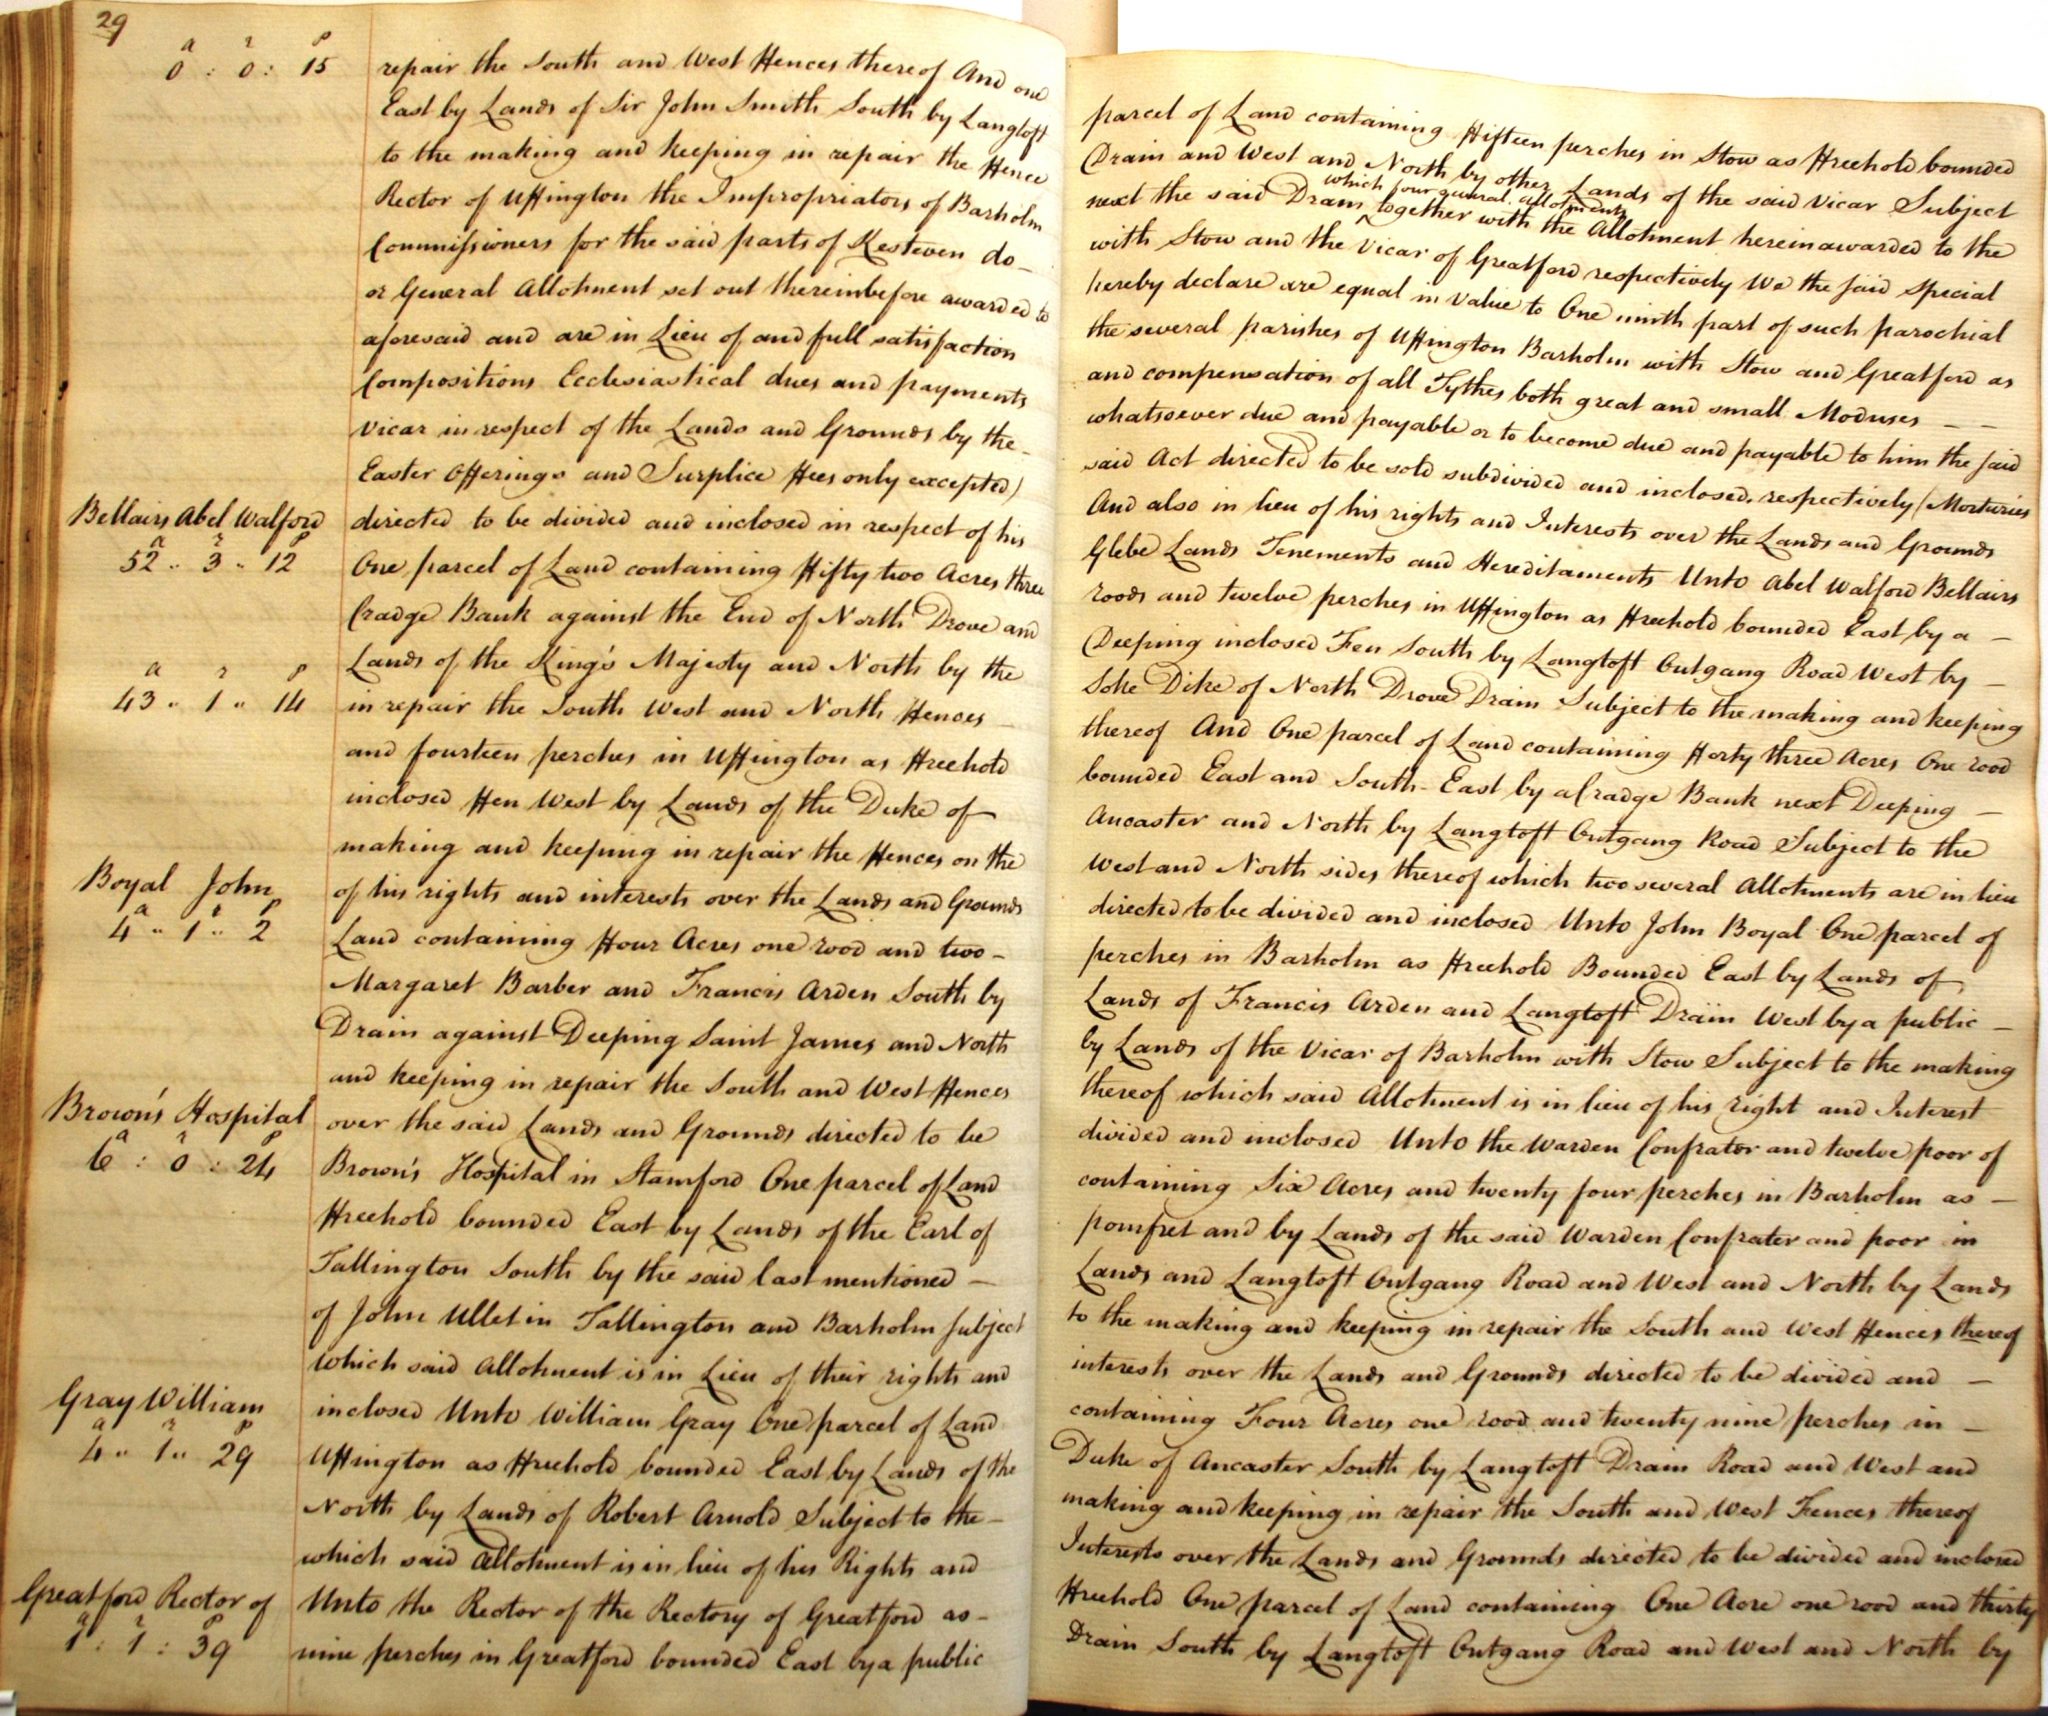 29
a r p
0 : 0 : 15 repair the South and West Fences thereof And one parcel of Land containing Fifteen perches in Stow as Freehold bounded
East by Lands of Sir John Smith South by Langtoft Drain and West and North by other Lands of the said Vicar Subject
to the making and keeping in repair the Fence next the said Drain which four several allotments together with the Allotment herein awarded to the
Rector of Uffington the Impropriators of Barholm with Stow and the Vicar of Greatford respectively We the said Special
Commissioners for the said parts of Kesteven do - hereby declare are equal in Value to One ninth part of such parochial
or General Allotment set out thereinbefore awarded to the several parishes of Uffington Barholm with Stow and Greatford as
aforesaid and are in Lieu of and full satisfaction and compensation of all Tythes both great and small Moduses - -
Compositions Ecclesiastical dues and payments whatsoever due and payable or to become due and payable to him the said
Vicar in respect of the Lands and Grounds by the - said Act directed to be sold subdivided and inclosed respectively (Morturies
Easter Offerings and Surplice Fees only excepted) And also in lieu of his rights and Interests over the Lands and Grounds
Bellairs Abel Walford directed to be divided and inclosed in respect of his Glebe Lands Tenements and Hereditaments Unto Abel Walford Bellairs
a r p
52 .. 3 .. 12 One parcel of Land containing Fifty two Acres three roods and twelve perches in Uffington as Freehold bounded East by a -
Cradge Bank against the End of North Drove and Deeping inclosed Fen South by Langtoft Outgang Road West by -
a r p
Lands of the King's Majesty and North by the Soke Dike of North Drove Drain Subject to the making and keeping
43 .. 1 .. 14 in repair the South West and North Fences - thereof And One parcel of Land containing Forty three Acres One rood
and fourteen perches in Uffington as Freehold bounded East and South-East by a Cradge Bank next Deeping -
inclosed Fen West by Lands of the Duke of - Ancaster and North by Langtoft Outgang Road Subject to the
making and keeping in repair the Fences on the West and North sides thereof which two several Allotments are in lieu
Boyal John of his rights and interests over the Lands and Grounds directed to be divided and inclosed Unto John Boyal One parcel of
a r p
4 .. 1 .. 2 Land containing Four Acres one rood and two - perches in Barholm as Freehold Bounded East by Lands of
Margaret Barber and Francis Arden South by Lands of Francis Arden and Langtoft Drain West by a public -
Drain against Deeping Saint James and North by Lands of the Vicar of Barholm with Stow Subject to the making
and keeping in repair the South and West Fences thereof which said Allotment is in lieu of his right and Interest
Brown's Hospital over the said Lands and Grounds directed to be divided and inclosed Unto the Warden Confrator and twelve poor of
a r p
6 : 0 : 24 Brown's Hospital in Stamford One parcel of Land containing Six Acres and twenty four perches in Barholm as -
Freehold bounded East by Lands of the Earl of Pomfret and by Lands of the said Warden Confrater and poor in
Tallington South by the said last mentioned - Lands and Langtoft Outgang Road and West and North by Lands
of John Ullet in Tallington and Barholm subject to the making and keeping in repair the South and West Fences thereof
Which said Allotment is in Lieu of their rights and interests over the Lands and Grounds directed to be divided and -
Gray William inclosed Unto William Gray One parcel of Land containing Four Acres one rood and twenty nine perches in -
a r p
4 .. 1 .. 29 Uffington as Freehold bounded East by Lands of the Duke of Ancaster South by Langtoft Drain Road and West and
North by Lands of Robert Arnold Subject to the - making and keeping in repair the South and West Fences thereof
which said Allotment is in lieu of his Rights and Interests over the Lands and Grounds directed to be divided and inclosed
Greatford Rector of Unto the Rector of the Rectory of Greatford as - Freehold One parcel of Land containing One Acre one rood and thirty
a r p
1 : 1 : 39 nine perches in Greatford bounded East by a public Drain South by Langtoft Outgang Road and West and North by